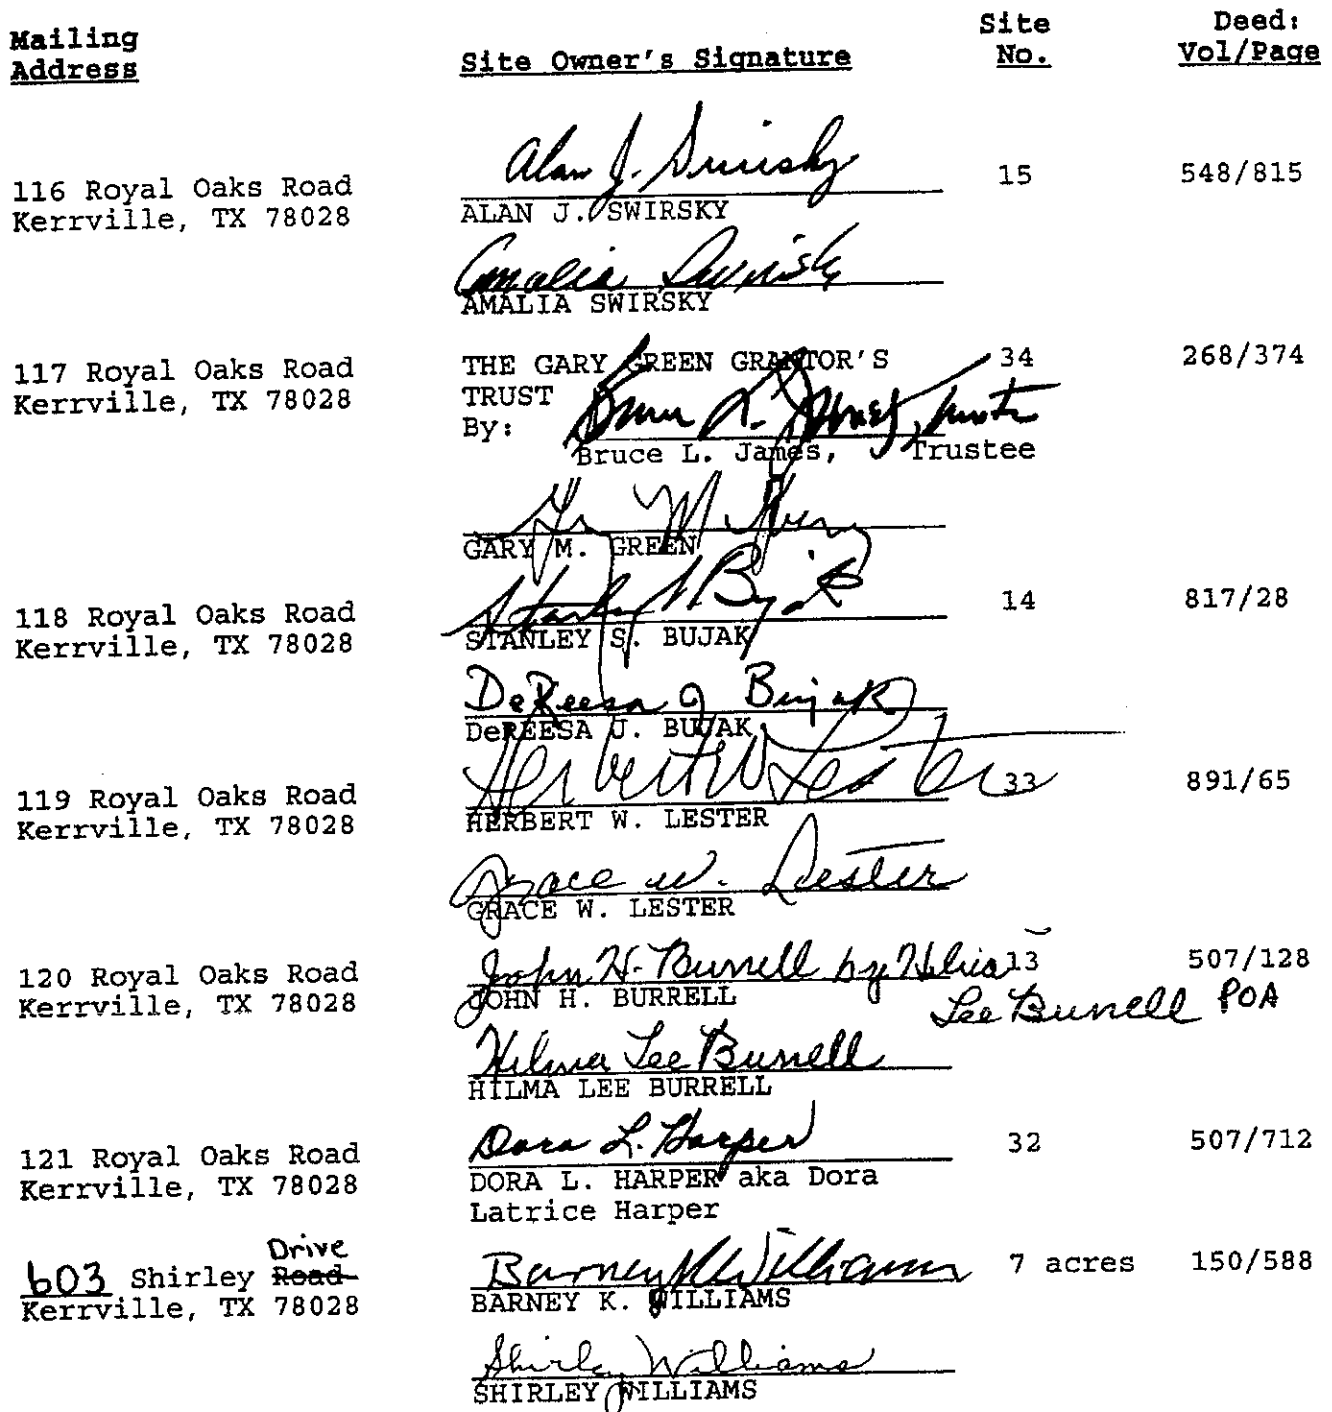 Mailing Address
Site Owner's Signature
Site No.
Deed: Vol/Page
116 Royal Oaks Road
Kerrville, TX 78028
Alan J. Swirsky
15
548/815
ALAN J. SWIRSKY
Amalia Swirsky
AMALIA SWIRSKY
117 Royal Oaks Road
Kerrville, TX 78028
THE GARY GREEN GRANTOR'S
34
268/374
TRUST
By: Bruce L. James, Trustee
Bruce L. James, Trustee
Gary M. Green
GARY M. GREEN
118 Royal Oaks Road
Kerrville, TX 78028
Stanley S. Bujak
14
817/28
STANLEY S. BUJAK
DeReesa J Bujak
DeREESA J. BUJAK
119 Royal Oaks Road
Kerrville, TX 78028
Herbert W Lester
33
891/65
HERBERT W. LESTER
Grace W. Lester
GRACE W. LESTER
120 Royal Oaks Road
Kerrville, TX 78028
John H. Burrell by Hilma
13
507/128
Lee Burrell POA
JOHN H. BURRELL
Hilma Lee Burrell
HILMA LEE BURRELL
121 Royal Oaks Road
Kerrville, TX 78028
Dora L. Harper
32
507/712
DORA L. HARPER aka Dora
Latrice Harper
Drive
603 Shirley Road
Kerrville, TX 78028
Barney K Williams
7 acres
150/588
BARNEY K. WILLIAMS
Shirley Williams
SHIRLEY WILLIAMS